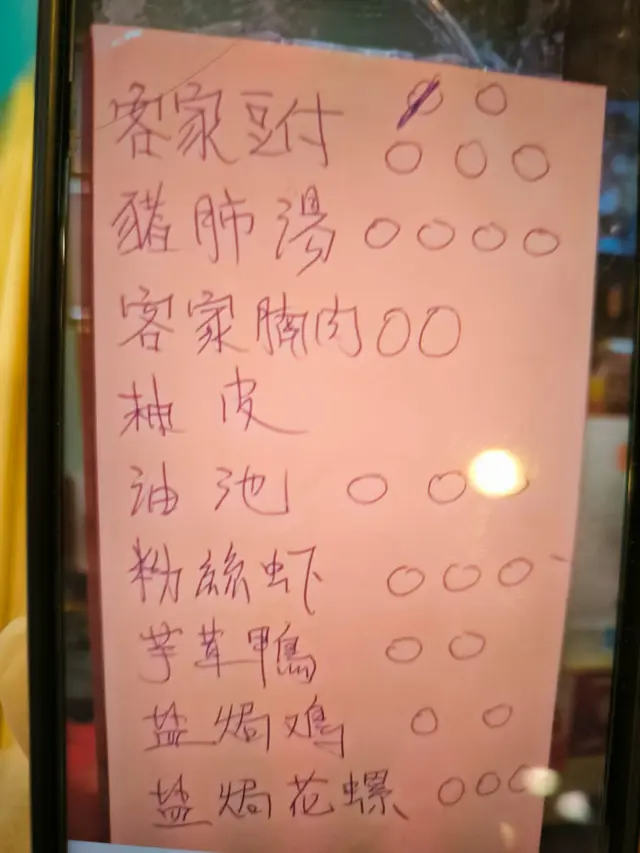 客家豆付
豬肺湯
客家腩肉
柚皮
油池
粉絲虾
芋茸鴨
盐焗鸡
盐焗花螺